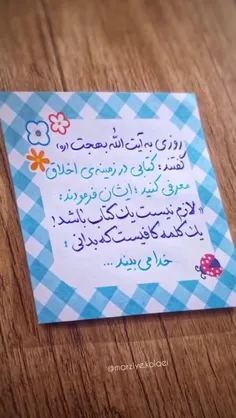 روزی به آیت الله بهجت (ره)
گفتند: کتابی در زمینه‌ی اخلاق
معرفی کنید؛ ایشان فرمودند:
«لازم نیست یک کتاب باشد!
یک کلمه کافیست که بدانی:
خدا می بیند ...
@marziyexolaei